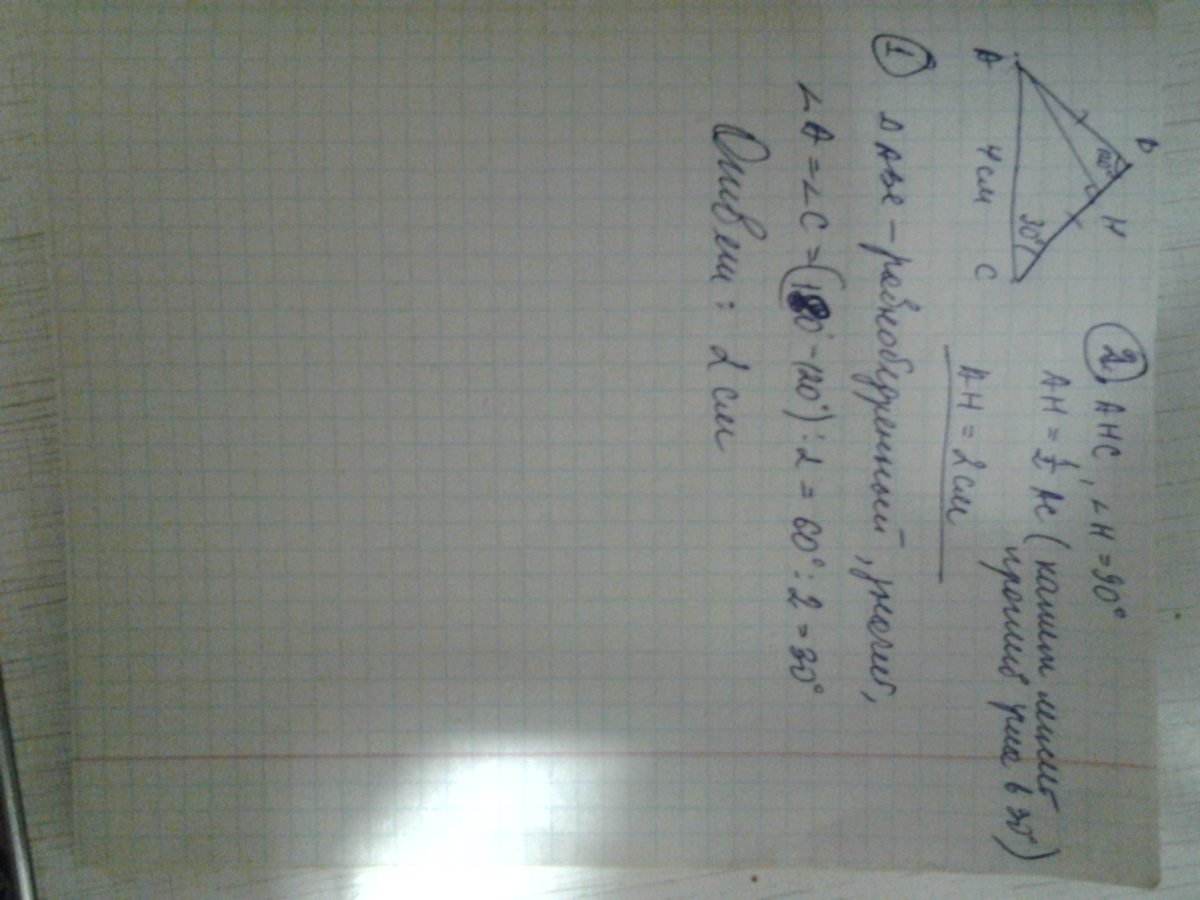 A
B
120°
H
30°
4 см
C
② AHC, ∠H = 90°
AH = 1/2 AC (катет лежит
против угла в 30°)
AH = 2 см
① Δ ABC – равнобедренный, значит,
∠A = ∠C = (180° - 120°) : 2 = 60° : 2 = 30°
Ответ: 2 см